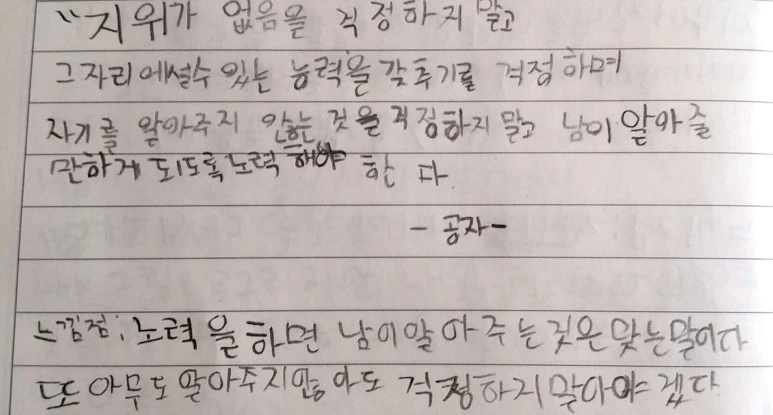 "지위가 없음을 걱정하지 말고
그 자리에설수 있는 능력을 갖추기를 걱정하며
자기를 알아주지 않는 것을 걱정하지 말고 남이 알아줄
만하게 되도록노력 해야 한 다.
- 공자 -
느낌점: 노력을 하면 남이알아 주는것은 맞는말이다
또 아무도 알아주지않아도 걱정하지말아야 겠다